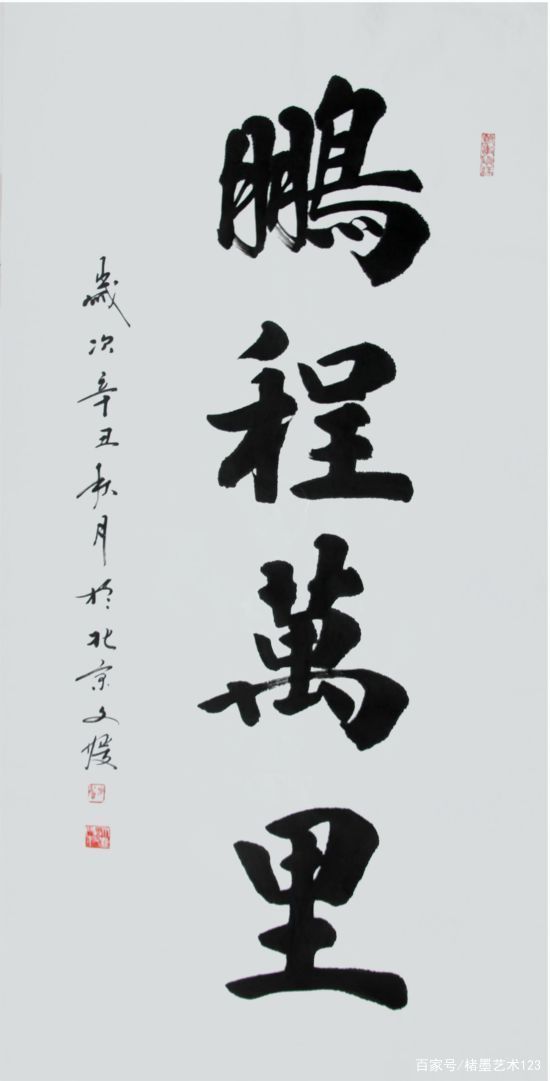 鵬程萬里
歲次辛丑秋月於北京文媛
百家号/楮墨艺术123